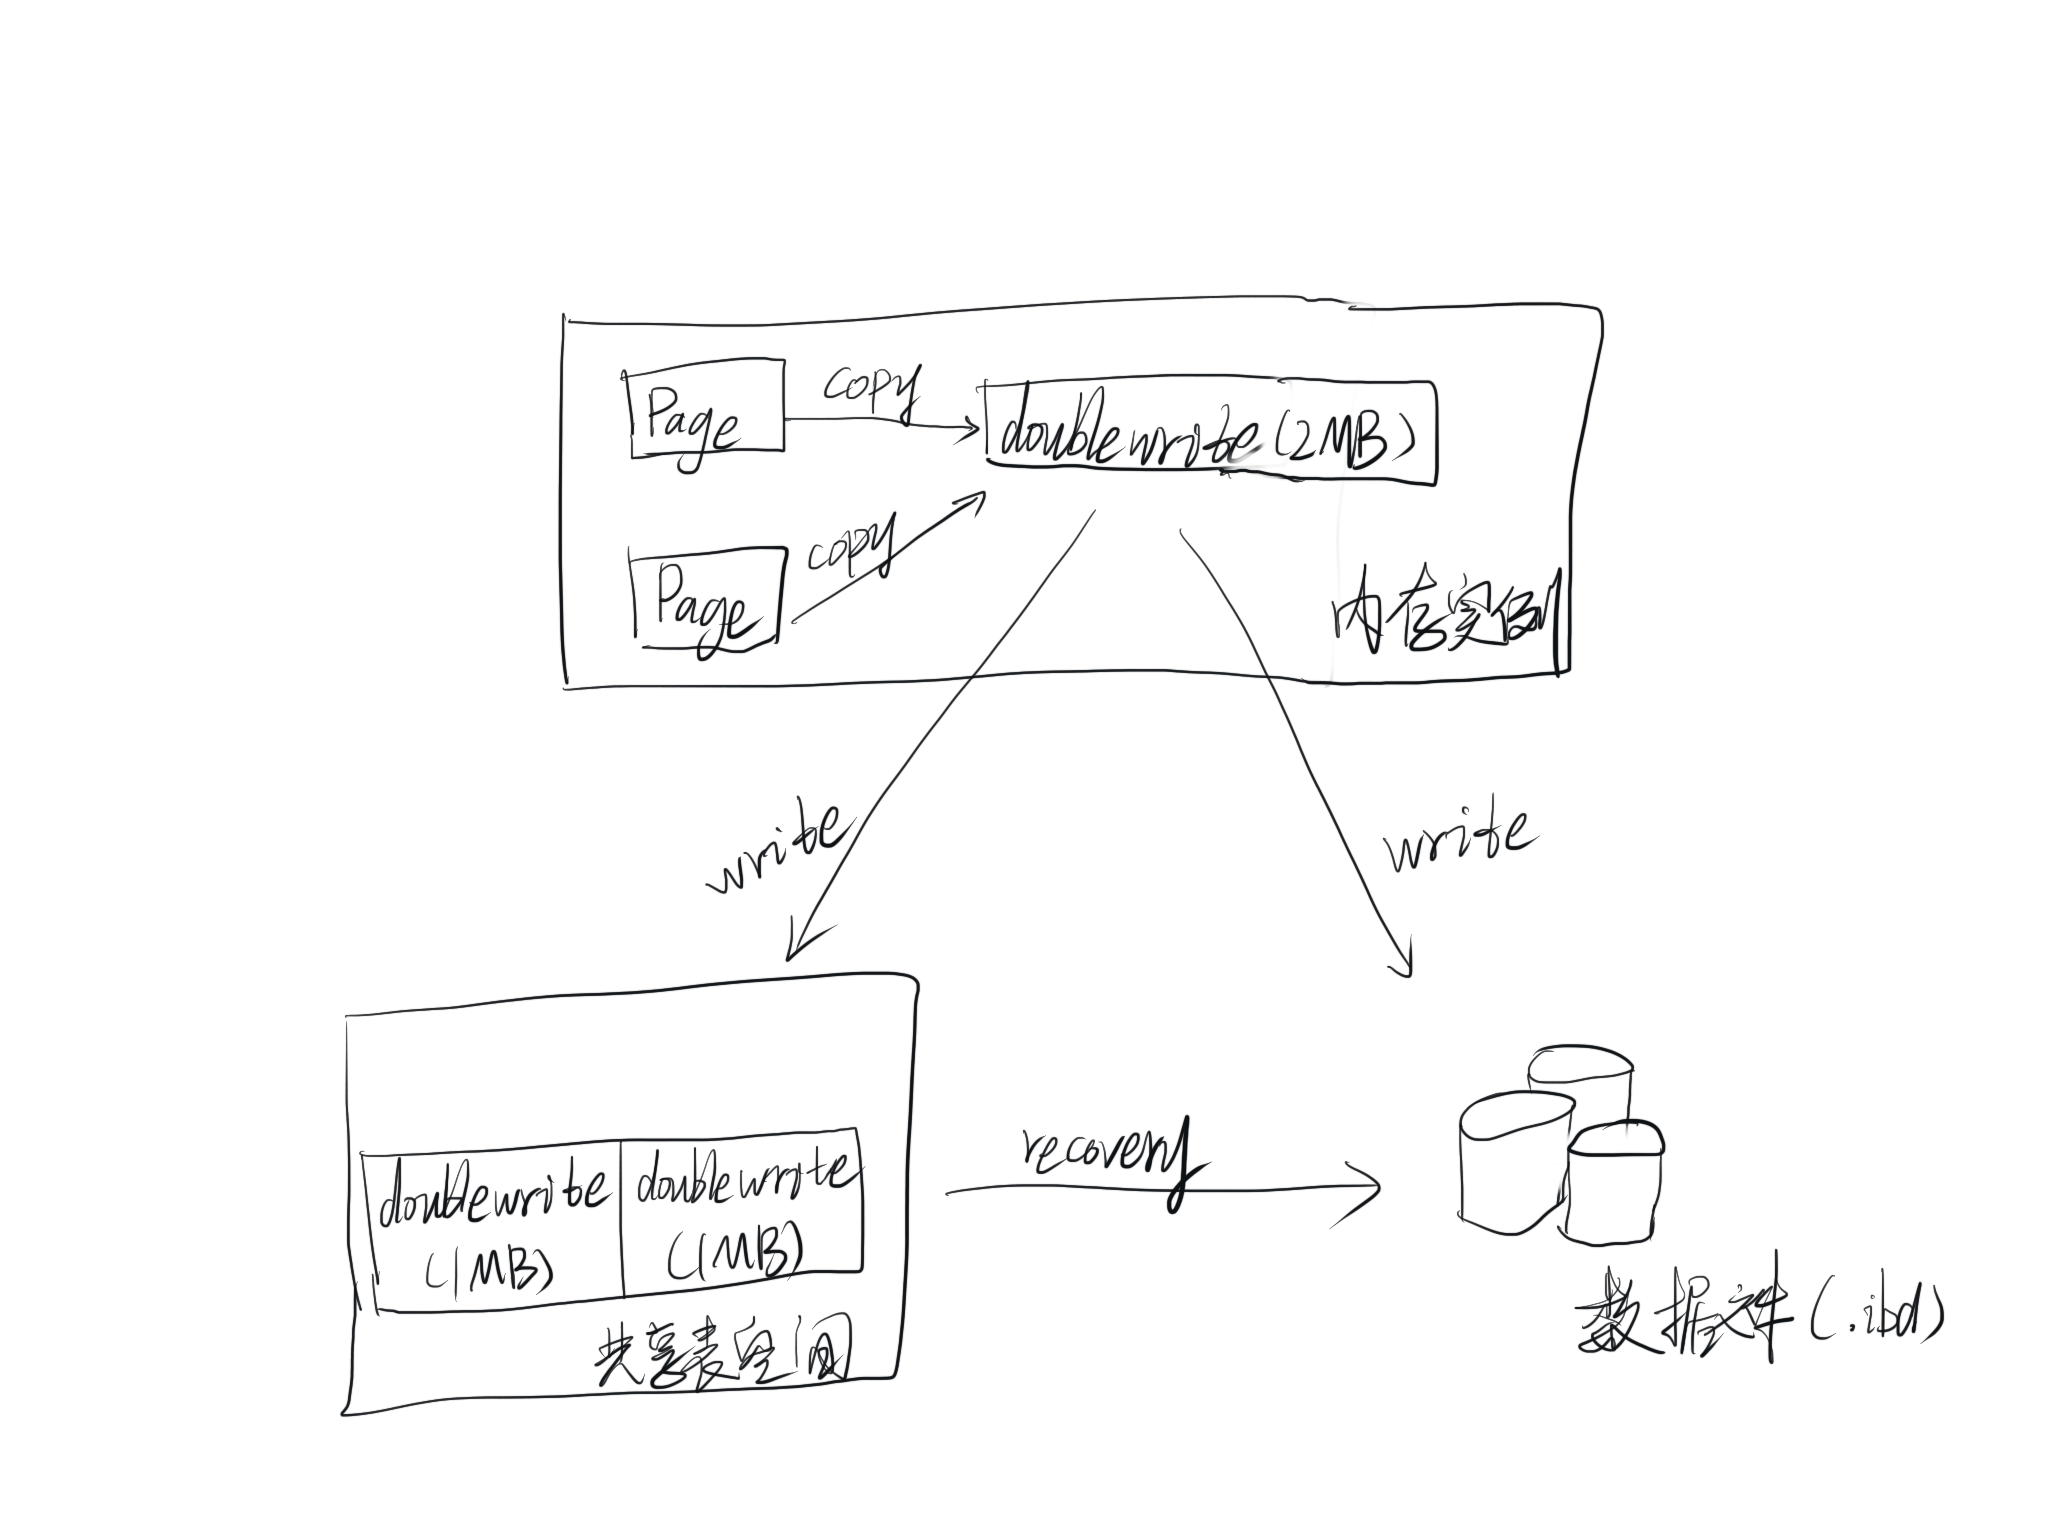 Page
copy
doublewrite(2MB)
Page
copy
内存实例
write
write
doublewrite
(1MB)
doublewrite
(1MB)
共享表空间
recovery
数据文件(.ibd)